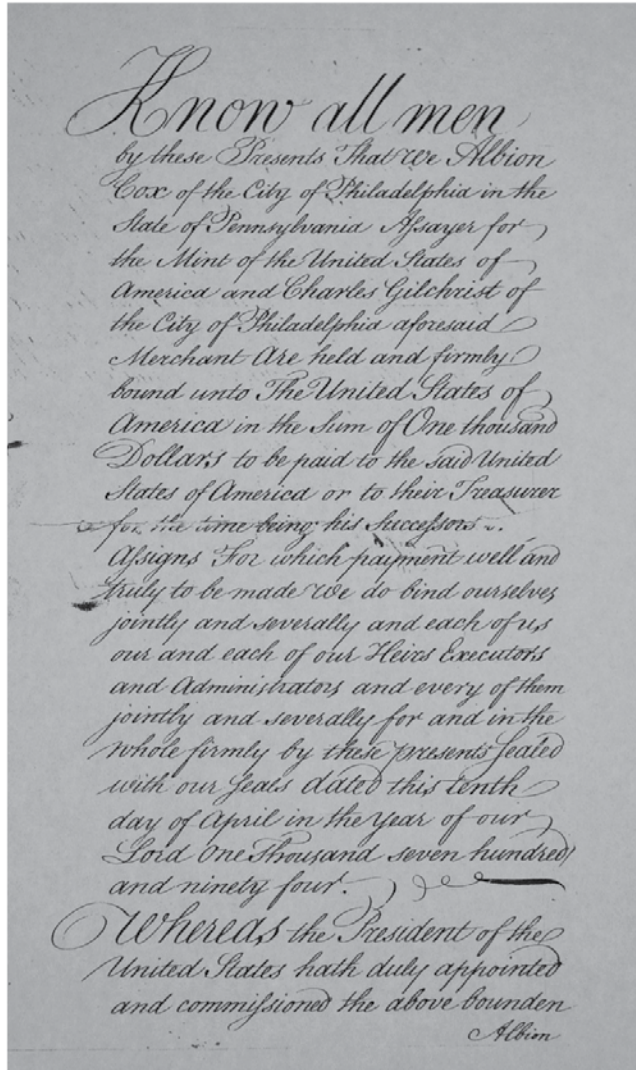 Know all men
by these Presents That We Albion
Cox of the City of Philadelphia in the
State of Pennsylvania Aſsayer for
the Mint of the United States of
America and Charles Gilchrist of
the City of Philadelphia aforesaid
Merchant Are held and firmly
bound unto The United States of
America in the Sum of One thousand
Dollars to be paid to the said United
States of America or to their Treasurer
for the time being his Succeſsors
Aſsigns For which payment well and
truly to be made We do bind ourselves
jointly and severally and each of us
our and each of our Heirs Executors
and Administrators and every of them
jointly and severally for and in the
whole firmly by these presents Sealed
with our Seals dated this tenth
day of April in the Year of our
Lord One Thousand seven hundred
and ninety four.
Whereas the President of the
United States hath duly appointed
and commiſsioned the above bounden
Albion